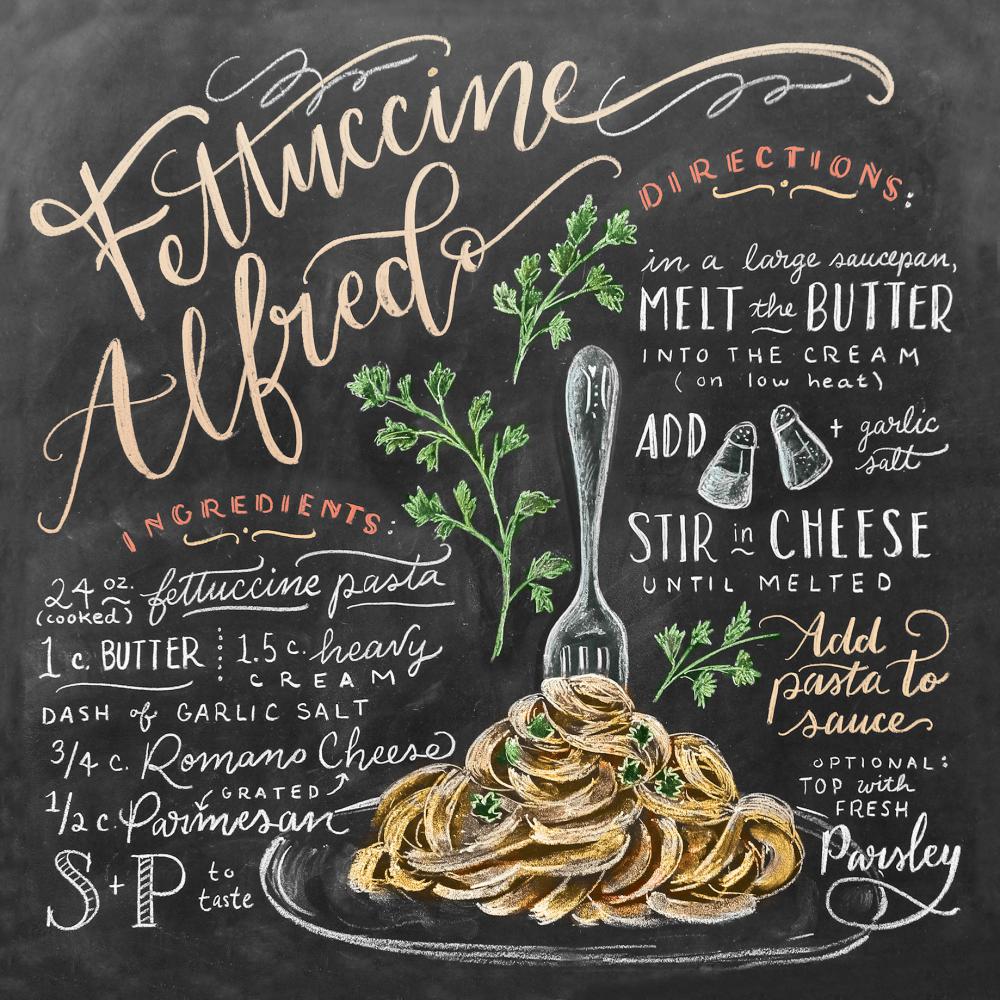 Fettuccine
Alfredo
INGREDIENTS:
24 oz. fettuccine pasta
(cooked)
1 c. BUTTER 1.5 c. heavy
CREAM
DASH of GARLIC SALT
3/4 c. Romano Cheese
GRATED
1/2 c. Parmesan
S + P to
taste
DIRECTIONS:
in a large saucepan,
MELT the BUTTER
INTO THE CREAM
(on low heat)
ADD + garlic
salt
STIR in CHEESE
UNTIL MELTED
Add
pasta to
sauce
OPTIONAL:
TOP with
FRESH
Parsley